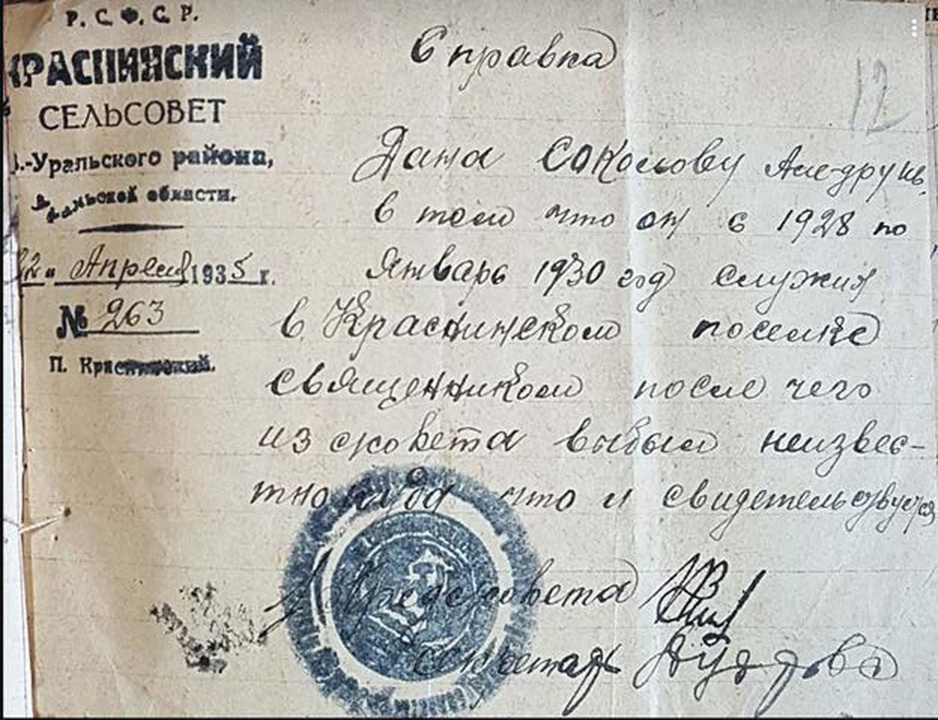 Р. С. Ф. С. Р.
КРАСНИНСКИЙ
СЕЛЬСОВЕТ
В.-Уральского района,
Уральской области.
22 " Апреля 1935 г.
№ 263
П. Краснинский.
Справка
12
Дана Соколову
в том что он с 1928 по
Январь 1930 год служил
в Краснинском поселке
священником после чего
из сковета выбыл неизвес-
тно куда что и свидетельствуется
Предсовета
Секретарь